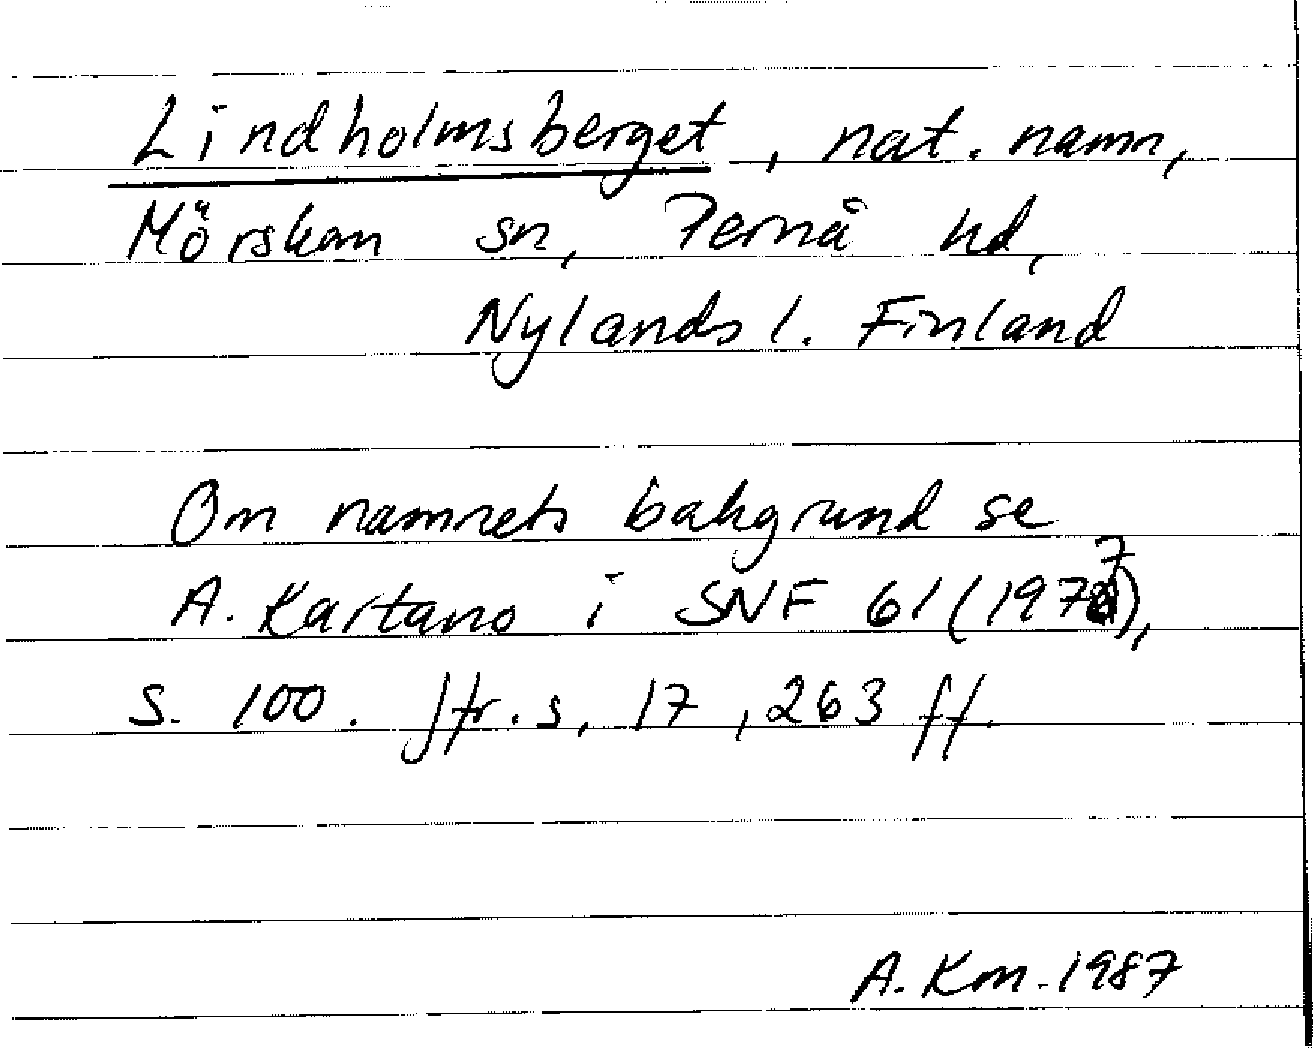 Lindholmsberget, nat. namn,
Mörskom sn, Pernå hd,
Nylands l. Finland
Om namnets bakgrund se
A. Kartano i SNF 61 (1977),
s. 100. Jfr. s. 17, 263 ff.
A. Kn. 1987